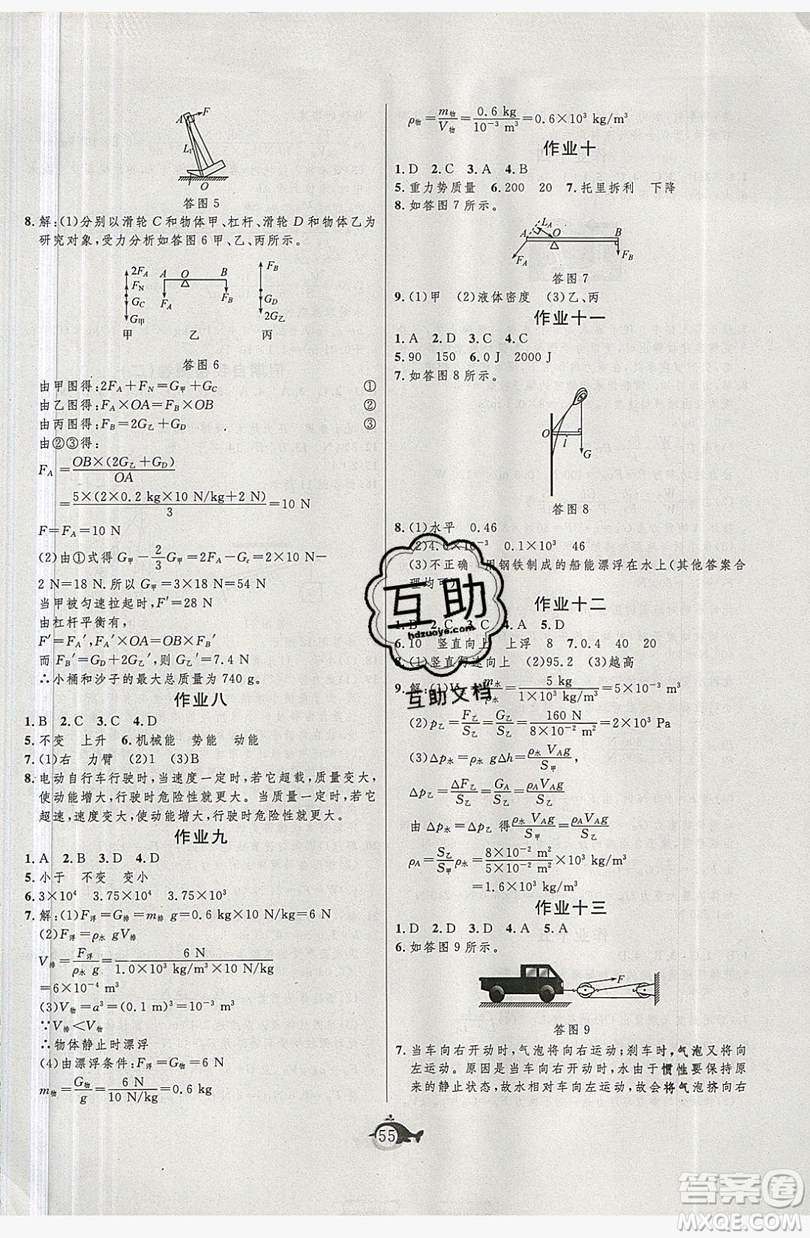 A
F
L₁
O
答图 5
8. 解:(1)分别以滑轮 C 和物体甲、杠杆、滑轮 D 和物体乙为
研究对象,受力分析如答图 6 甲、乙、丙所示。
2F_A
F_N
G_C
G_甲
甲
A O B
F_A
F_B
乙
F_B
G_D
2G_乙
丙
答图 6
由甲图得:2F_A+F_N=G_甲+G_C ①
由乙图得:F_A×OA=F_B×OB ②
由丙图得:F_B=2G_乙+G_D ③
由②③得:
F_A=OB×(2G_乙+G_D)/OA
=5×(2×0.2 kg×10 N/kg+2 N)/3=10 N
F=F_A=10 N
(2)由①式得 G_甲-2/3G_甲=2F_A-G_c=2×10 N-
2 N=18 N,所以 G_甲=3×18 N=54 N
当甲被匀速拉起时,
由杠杆平衡有,
F'=F_A',F_A'×OA=F_B'×OB
而 F_B'=2G_乙'+G_D
∴小桶和沙子的最大总质量为 740 g。
作业八
1. B 2. C 3. C 4. D
5. 不变 上升 6. 机械能 势能 动能
7. (1)右 力臂 (2)1 (3)B
8. 电动自行车行驶时,当速度一定时,若它超载,质量变大,
使动能增大,行驶时危险性更大。当质量一定时,若它
超速,速度变大,使动能增大,行驶时危险性更大。
作业九
1. A 2. B 3. D 4. D
5. 小于 不变 变小
6. 3×10⁴ 3.75×10⁴ 3.75×10⁴
7. 解:(1)F_浮=G_排=m_排 g=0.6 kg×10 N/kg=6 N
(2)F_浮=ρ_水 gV_排
V_排=F_浮/ρ_水g=6 N/(1.0×10³ kg/m³×10 N/kg)
=6×10⁻⁴ m³
(3)V_物=a³=(0.1 m)³=10⁻³ m³
∵V_排<V_物
∴物体静止时漂浮
(4)由漂浮条件:F_浮=G_物=6 N
m_物=G_物/g=6 N/10 N/kg=0.6 kg
ρ_物=m_物/V_物=0.6 kg/10⁻³ m³=0.6×10³ kg/m³
作业十
1. D 2. C 3. A 4. B
5. 重力势质量 6. 200 20 7. 托里拆利 下降
8. 如答图 7 所示。
A
L_A
O
B
F_A
F_B
答图 7
9. (1)甲 (2)液体密度 (3)乙、丙
作业十一
1. A 2. D 3. C 4. C
5. 90 150 6. 0 J 2000 J
7. 如答图 8 所示。
O
l
G
答图 8
8. (1)水平 0.46
(2)4.6×10⁻³ 0.1×10³ 46
(3)不正确 用钢铁制成的船能漂浮在水上(其他答案合
理均可)
作业十二
1. B 2. C 3. C 4. A 5. D
6. 10 竖直向上 上浮 8 7. 0.4 40 20
8. (1)竖直向上 (2)95.2 (3)越高
5 kg
=5×10⁻³ m³
(2)p_乙=F_乙/S_乙=G_乙/S_乙=160 N/8×10⁻² m²=2×10³ Pa
(3)Δp_水=ρ_水 gΔh=ρ_水 V_A g/S_甲
Δp_乙=ΔF_乙/S_乙=G_A/S_乙=ρ_A V_A g/S_乙
由 Δp_水=Δp_乙 得ρ_水 V_A g/S_甲=ρ_A V_A g/S_乙
ρ_A=S_乙/S_甲 ρ_水=8×10⁻² m²/5×10⁻² m²×1.0×10³ kg/m³
=1.6×10³ kg/m³
作业十三
1. D 2. D 3. C 4. A 5. A
6. 如答图 9 所示。
F
答图 9
7. 当车向右开动时,气泡将向右运动;刹车时,气泡又将向
左运动。原因是当车向右开动时,水由于惯性要保持原
来的静止状态,故水相对车向左运动,故会将气泡挤向右
55
互助
hdzuoye.com
互助文档
答案圈
MXQE.COM